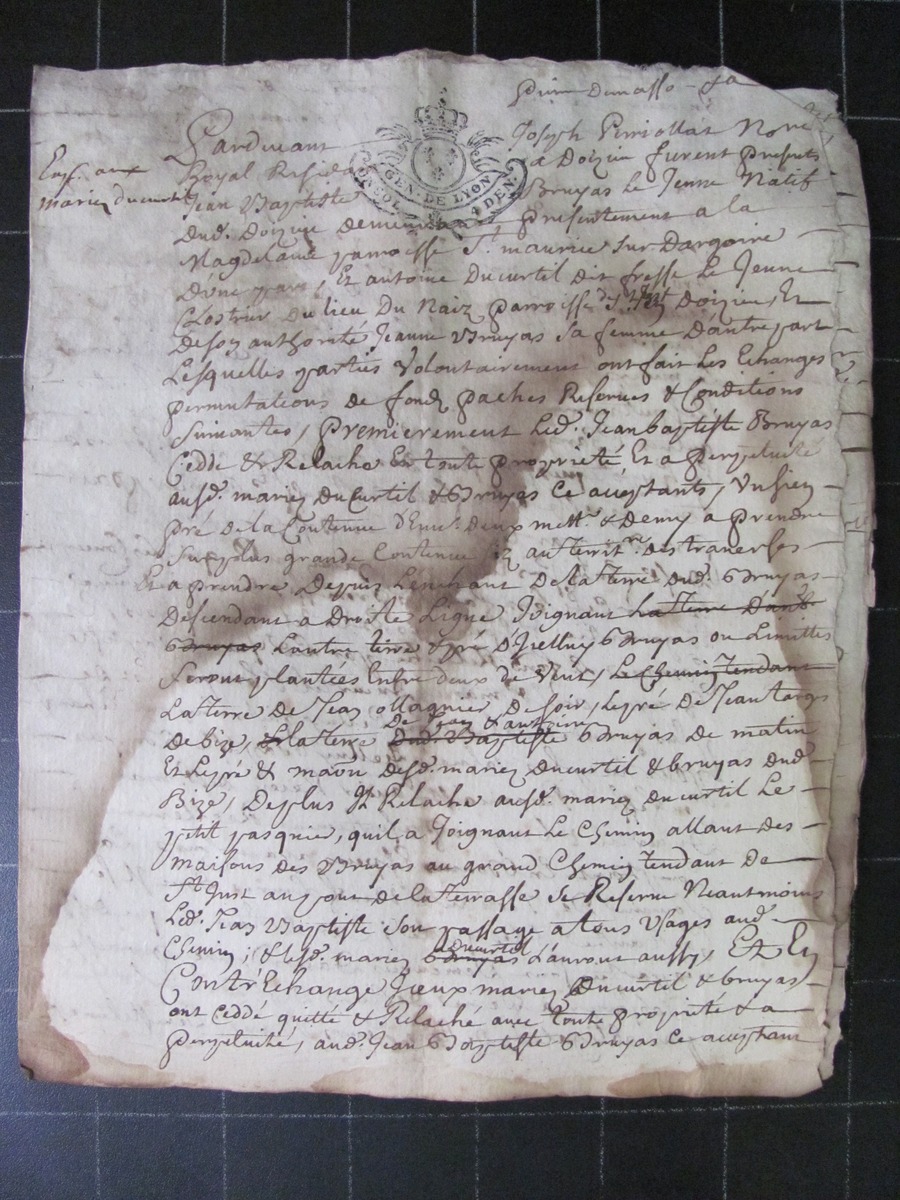 Joseph Perriollat Nore
Exp. aux
mariez ducurtil
Pardevant
Royal Resida
GEN. DE LYON
4 DEN
a Doizieu furent presents
Jean Baptiste Bruyas Le Jeune Natif
Dud. Doizieu demeurant presentement a la
Magdelaine parroisse St maurice sur Dargoire
D'une part, Et antoine Ducurtil dit fresse Le Jeune
Clostrier du lieu Du Naiz parroisse Doizieu, Et
De son authorité Jeanne Bruyas sa femme D'autre part
Lesquelles parties Volontairement ont fait Les Echanges
permutations de fondz paches Reserves & Conditions
Suivantes, premierement Led. Jean baptiste Bruyas
Cedde & Relache En toute proprieté Et a perpetuité
ausd. mariez Ducurtil & Bruyas ce acceptants, Un sien
pré de la Contenue d'Env. deux mett. & demy a prendre
Sur plus grande Contenue siz au territ. des traverses
Et a prendre Depuis Lenchant De la terre dud. Bruyas
Descendant a Droite Ligne Joignant La terre Dud.
Bruyas Lautre terre & pré D'Icelluy Bruyas ou Limittes
Seront plantées Entre deux de Vent, Le Chemin tendant
La terre de Jean ollagnier De soir, Le pré De Jean
De bize, & La terre Dud. Baptiste Bruyas de matin
Et Le pré & desd. mariez Ducurtil & bruyas dud.
Bize, De plus Il Relache ausd. mariez ducurtil Le
petit pasquier, quil a Joignant Le Chemin allant des
maisons des Bruyas au grand Chemin tendant de
St Just au de la terrasse Se Reserve Neautmoins
Led. Jean Baptiste Son passage a tous Usages aud.
ducurtil
Chemin, & Lesd. mariez Bruyas L'auront aussy, Et En
Contr'Echange Iceux mariez Ducurtil & bruyas
ont Ceddé quitté & Relaché avec toute proprieté & a
perpetuité, aud. Jean Baptiste Bruyas ce acceptant